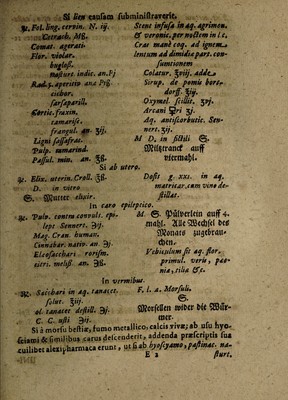 Si lien causam subministraverit.
℞. Fol. ling. cervin. N. iij.
Ceterach. Mß.
Comat. agerati.
Flor. violar.
bugloss.
nasturt. indic. an. Pj
Rad. 5. aperitiv ana Pjß.
cichor.
sarsaparill.
Cortic. fraxin.
tamarisc.
frangul. an ʒij.
Ligni sassafras.
Pulp. tamarind.
Passul. min. an. ℥ß.
Stent infusa in aq. agrimon.
& veronic. per noctem in l. c.
Crac mane coq. ad ignem
lentum ad dimidia part. con-
sumtionem
Colatur. ℥viij. adde
Sirup. de pomis bors-
dorff. ℥ij
Oxymel. scillit. ʒvj.
Arcani ri ʒj.
Aq. antiscorbutic. Sen-
nert. ℥ij.
M D. in fictili S.
Miltztranck auff
viermahl.
Si ab utero.
℞. Elix. uterin. Croll. ℥ß.
D. in vitro
S. Mutter elixir.
Dosis g. xxx. in aq.
matricar. cum vino de-
stillat.
In caro epileptico.
℞. Pulv. contra convuls. epi-
lept Sennert. ʒij.
Mag. Cran. human.
Cinnabar. nativ. an. ʒj
Eleosacchari rorism.
sitri. meliss. an. ʒß.
M. S. Pülverlein auff 4.
mahl. Alle Wechsel des
Monats zugebrau-
chen.
Vehiculum sit aq. flor.
primul. veris, pæo-
nia, tilia &c.
In vermibus.
℞. Sacchari in aq. tanacet.
solut. ℥iij.
ol tanacet destill. ℈ij.
C. C. usti ʒij.
F. l. a. Morsuli.
S.
Morsellen wider die Wür-
mer.
Si à morsu bestiæ, fumo metallico, calcis vivæ; ab usu hyo-
sciami & similibus carus descenderit, addenda præscriptis sua
cuilibet alexipharmaca erunt, ut si ab hyosciamo, pastinac. na-
E 2 sturt.